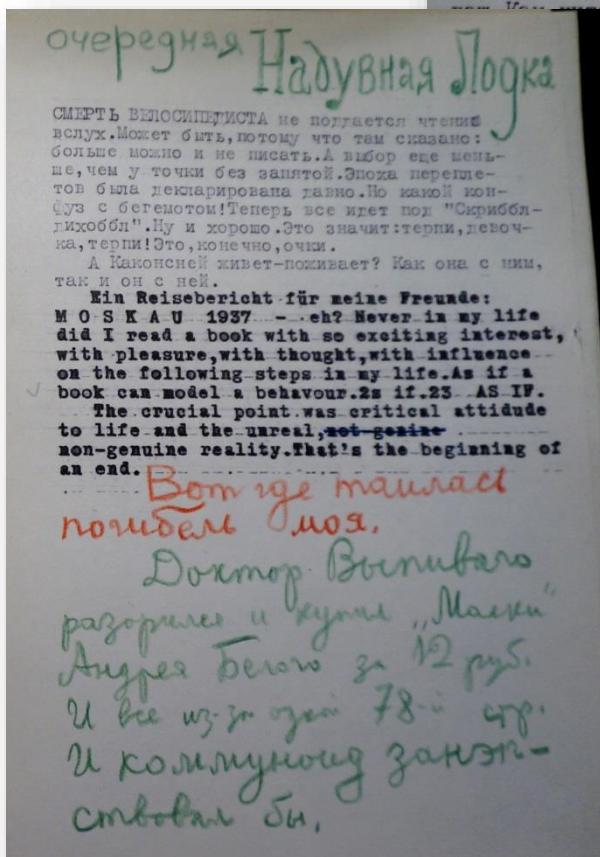 очередная Надувная Лодка
СМЕРТЬ ВЕЛОСИПЕДИСТА не поддается чтению
вслух.Может быть,потому что там сказано:
больше можно и не писать.А выбор еще мень-
ше,чем у точки без запятой.Эпоха перепле-
тов была декларирована давно.Но какой кон-
фуз с бегемотом!Теперь все идет под "Скриббл-
дихоббл".Ну и хорошо.Это значит:терпи,девоч-
ка,терпи!Это,конечно,очки.
А Каконсней живет-поживает? Как она с ним,
так и он с ней.
Ein Reisebericht für meine Freunde:
M O S K A U 1937 - eh? Never in my life
did I read a book with so exciting interest,
with pleasure,with thought,with influence
on the following steps in my life.As if a
book can model a behavour.2s if.23 AS IF.
The crucial point was critical attidude
to life and the unreal,not genine
non-genuine reality.That's the beginning of
an end.
Вот где таилась
погибель моя.
Доктор Выпиваго
разорился и купил „Маски"
Андрея Белого за 12 руб.
И все из-за одной 78-й стр.
И коммуноид занэп-
ствовал бы.